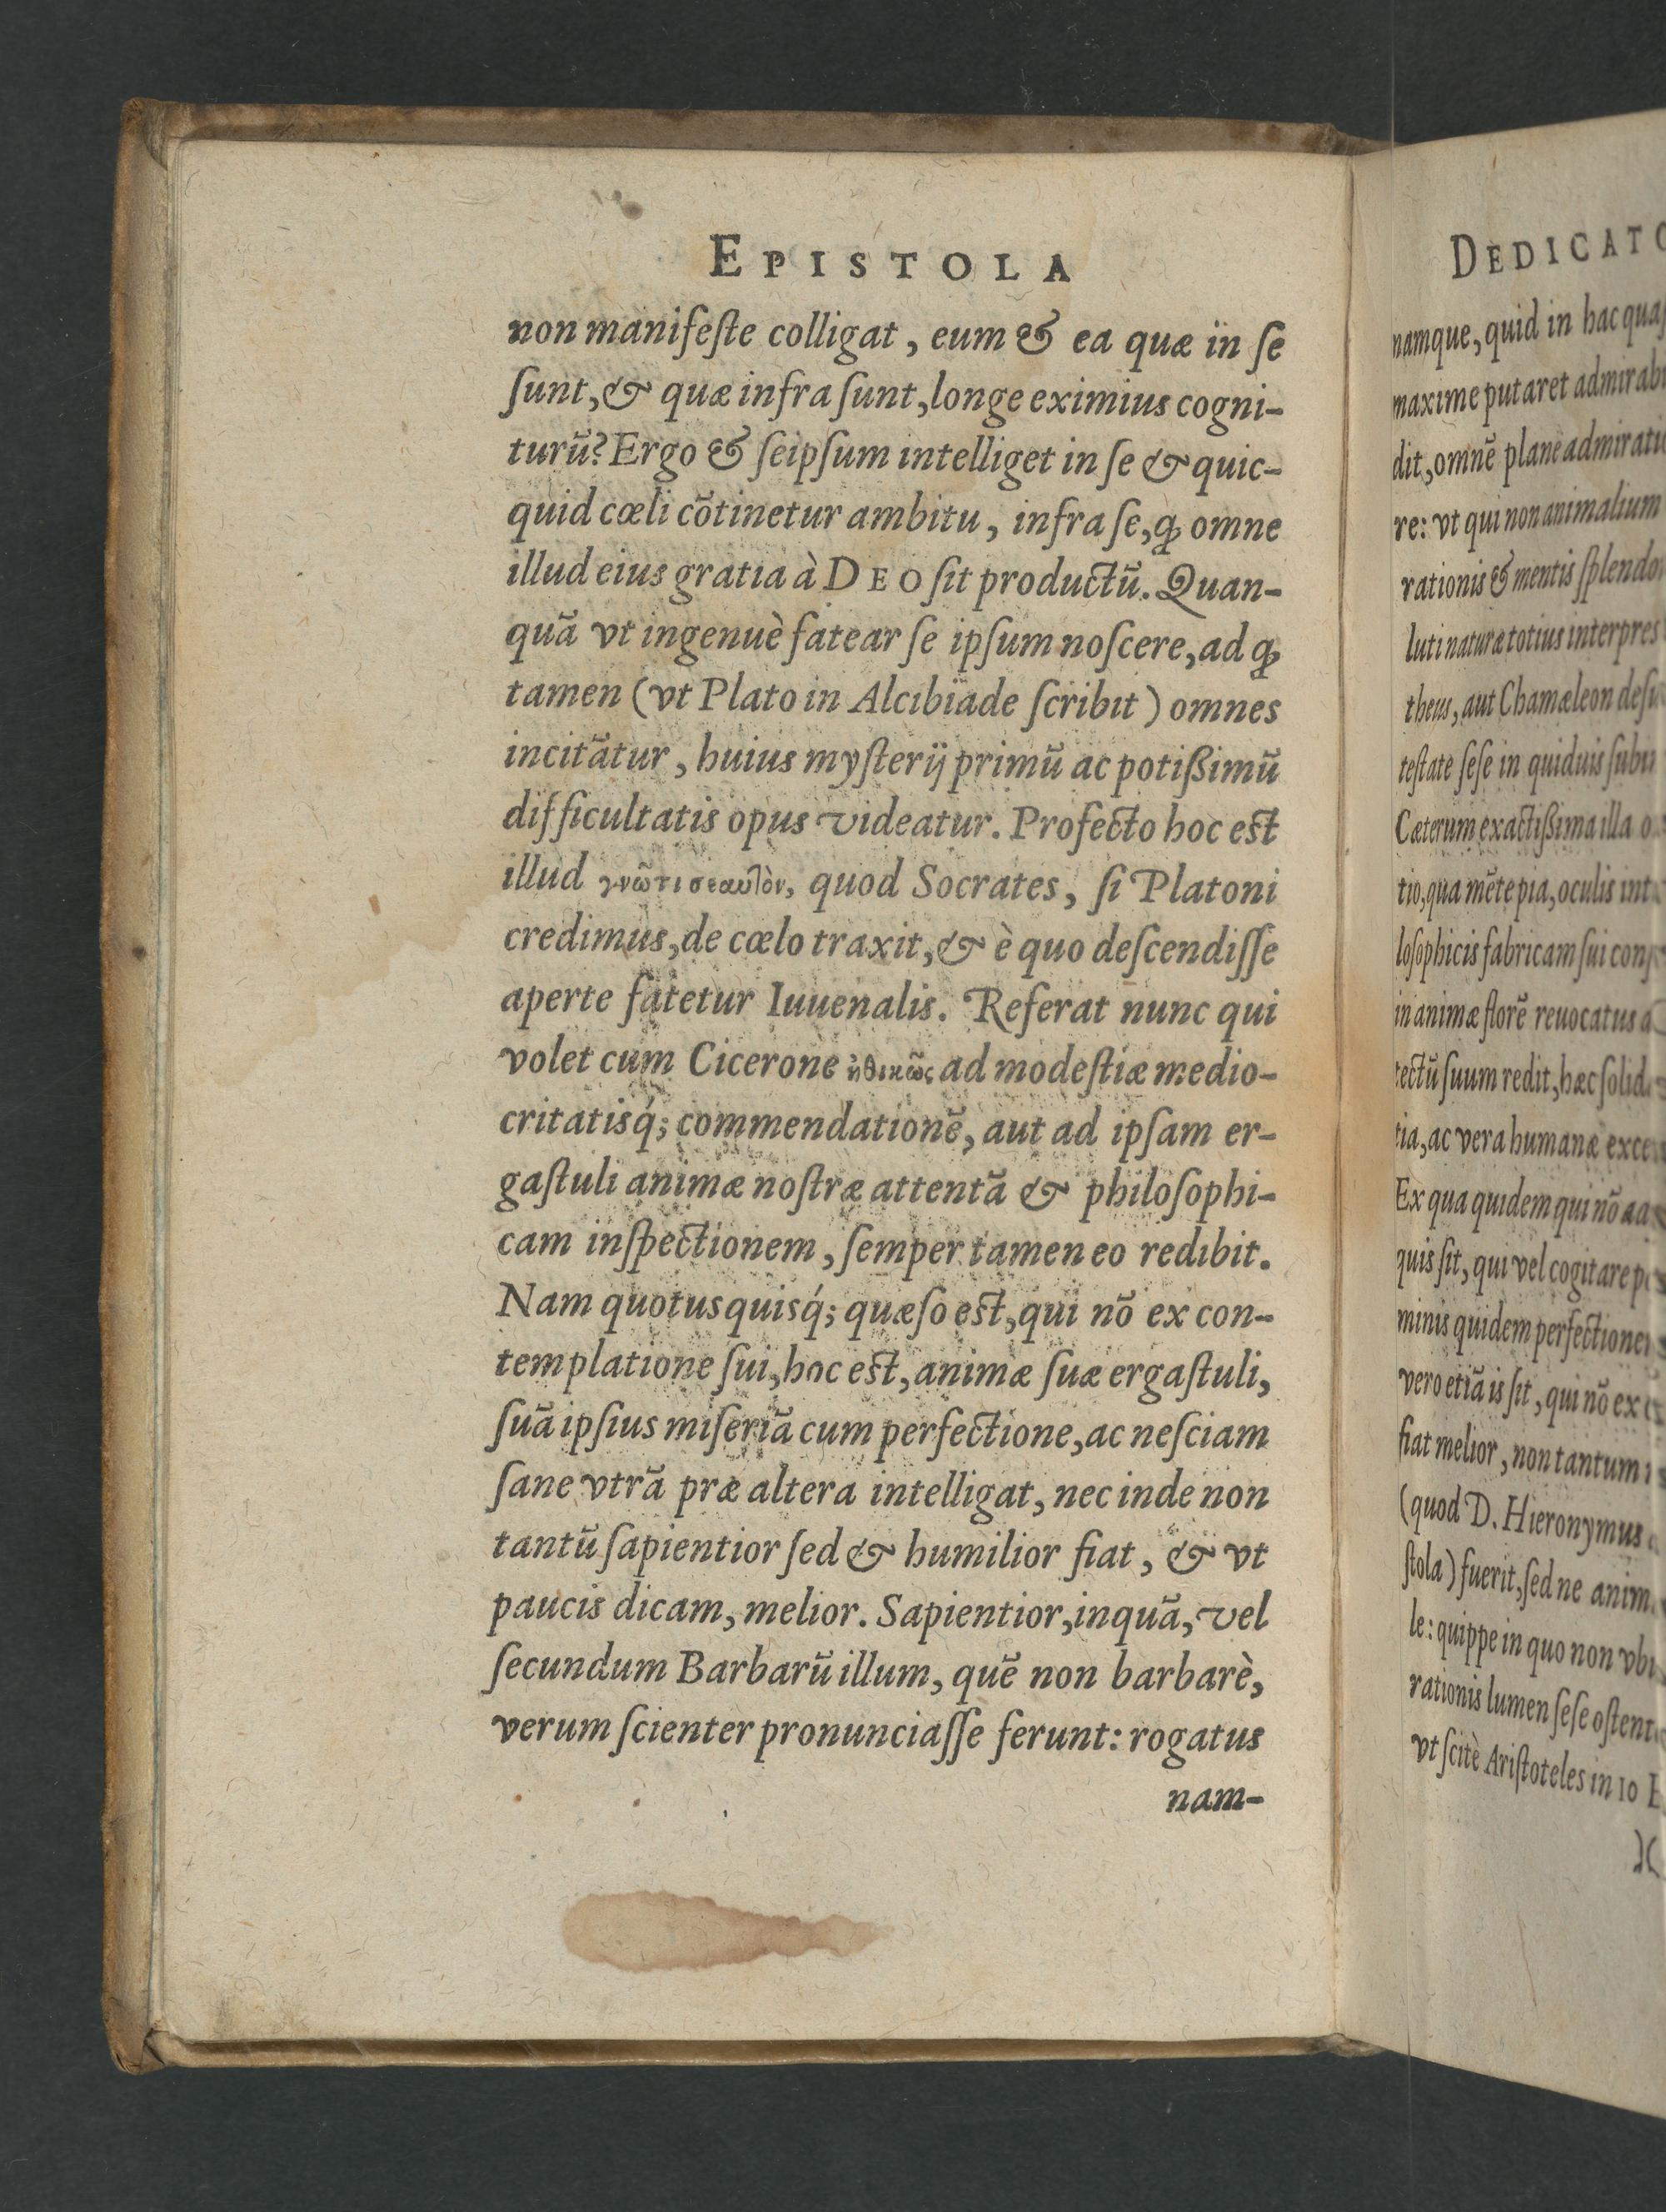 EPISTOLA
non manifeſte colligat, eum & ea quæ in ſe
ſunt, & quæ infra ſunt, longe eximius cogni-
turũ? Ergo & ſeipſum intelliget in ſe & quic-
quid cœli cõtinetur ambitu, infra ſe, ꝙ omne
illud eius gratia à DEO ſit productũ. Quan-
quã vt ingenuè fatear ſe ipſum noſcere, ad ꝙ
tamen (vt Plato in Alcibiade ſcribit) omnes
incitãtur, huius myſterij primũ ac potißimũ
difficultatis opus videatur. Profecto hoc est
illud γνῶτι σεαυτὸν, quod Socrates, ſi Platoni
credimus, de cœlo traxit, & è quo deſcendiſſe
aperte fatetur Iuuenalis. Referat nunc qui
volet cum Cicerone ἠθικῶς ad modeſtiæ medio-
critatisq́; commendationẽ, aut ad ipſam er-
gaſtuli animæ noſtræ attentã & philoſophi-
cam inſpectionem, ſemper tamen eo redibit.
Nam quotusquisq́; quæſo est, qui nõ ex con-
templatione ſui, hoc est, animæ ſuæ ergaſtuli,
ſuã ipſius miſeriã cum perfectione, ac neſciam
ſane vtrã præ altera intelligat, nec inde non
tantũ ſapientior ſed & humilior fiat, & vt
paucis dicam, melior. Sapientior, inquã, vel
ſecundum Barbarũ illum, quẽ non barbarè,
verum ſcienter pronunciaſſe ferunt: rogatus
nam-
DEDICATO
namque, quid in hac
maxime putaret
dit, omnẽ plane
re: vt qui non animalium
rationis & mentis
luti naturæ totius interpres
theus, aut Chamæleon
teſtate ſeſe in quiduis
Cæterum exactißima illa
tio, qua mẽte pia, oculis
loſophicis fabricam ſui
in animæ florẽ reuocatus
tectũ ſuum redit, hæc
tia, ac vera humanæ
Ex qua quidem qui nõ
quis ſit, qui vel cogitare
minis quidem
vero etiã is ſit, qui nõ ex
fiat melior, non tantum
(quod D. Hieronymus
ſtola) fuerit, ſed ne
le: quippe in quo non
rationis lumen ſeſe
vt ſcitè Ariſtoteles in 10
)(